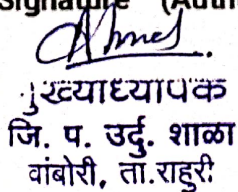 Signature (Auth
मुख्याध्यापक
जि. प. उर्दु. शाळा
वांबोरी, ता.राहुरी